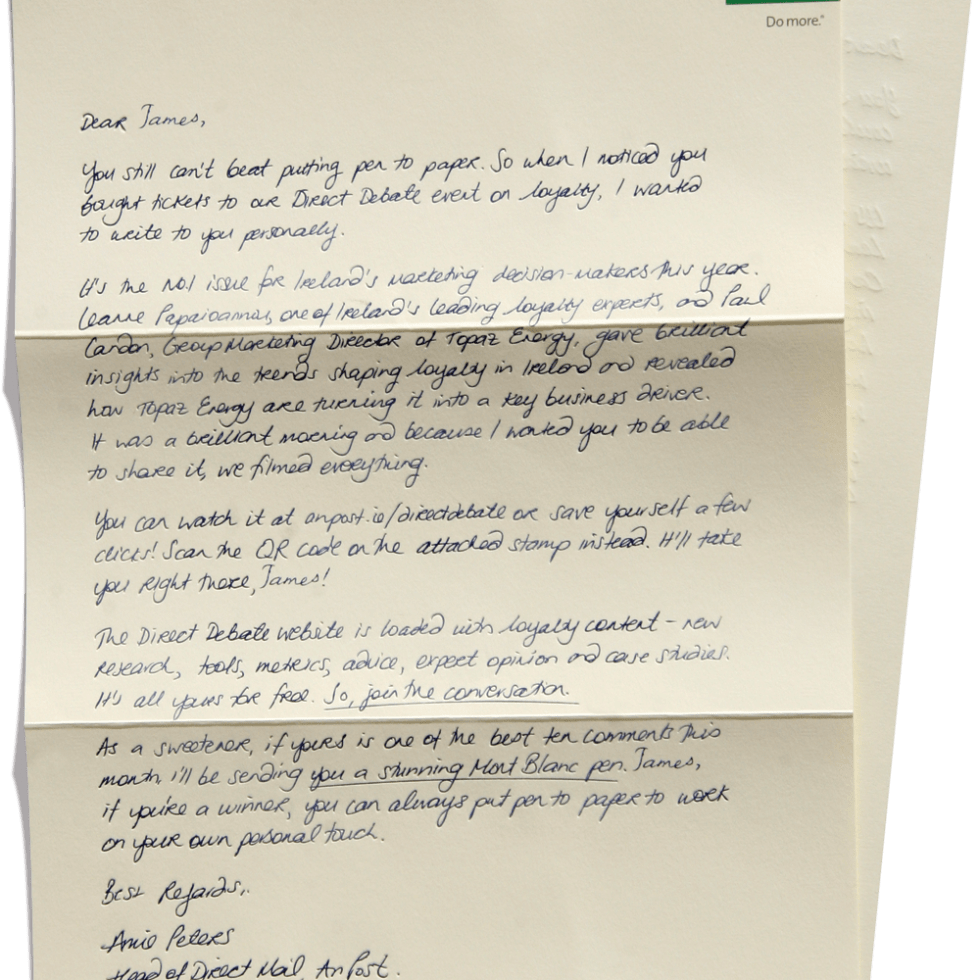 Do more.®
Dear James,
You still can't beat putting pen to paper. So when I noticed you
bought tickets to our Direct Debate event on loyalty, I wanted
to write to you personally.
It's the No.1 issue for Ireland's marketing decision-makers this year.
Leanne Papaioannou, one of Ireland's leading loyalty experts, and Paul
Candon, Group Marketing Director of Topaz Energy, gave brilliant
insights into the trends shaping loyalty in Ireland and revealed
how Topaz Energy are turning it into a key business driver.
It was a brilliant morning and because I wanted you to be able
to share it, we filmed everything.
You can watch it at anpost.ie/directdebate or save yourself a few
clicks! Scan the QR code on the attached stamp instead. It'll take
you right there, James!
The Direct Debate website is loaded with loyalty content - new
research, tools, metrics, advice, expert opinion and case studies.
It's all yours for free. So, join the conversation.
As a sweetener, if yours is one of the best ten comments this
month, i'll be sending you a stunning Mont Blanc pen. James,
if you're a winner, you can always put pen to paper to work
on your own personal touch.
Best Regards,
Peters
Head of Direct Mail, An Post.